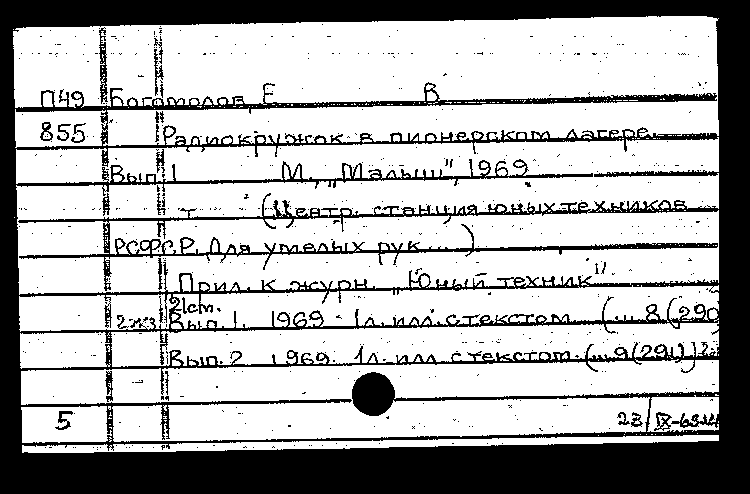 П49 Богомолов, Е В.
855 Радиокружок в пионерском лагере.
Вып. 1 М., „Малыш“, 1969
(Центр. станция юных техников
РСФСР. Для умелых рук...)
Прил. к журн. „Юный техник“
21см.
2экз Вып. 1. 1969. 1л. илл. с текстом (... 8 (290)
Вып. 2 1969. 1л. илл с текстом (... 9 (291))
5 23/IX-69